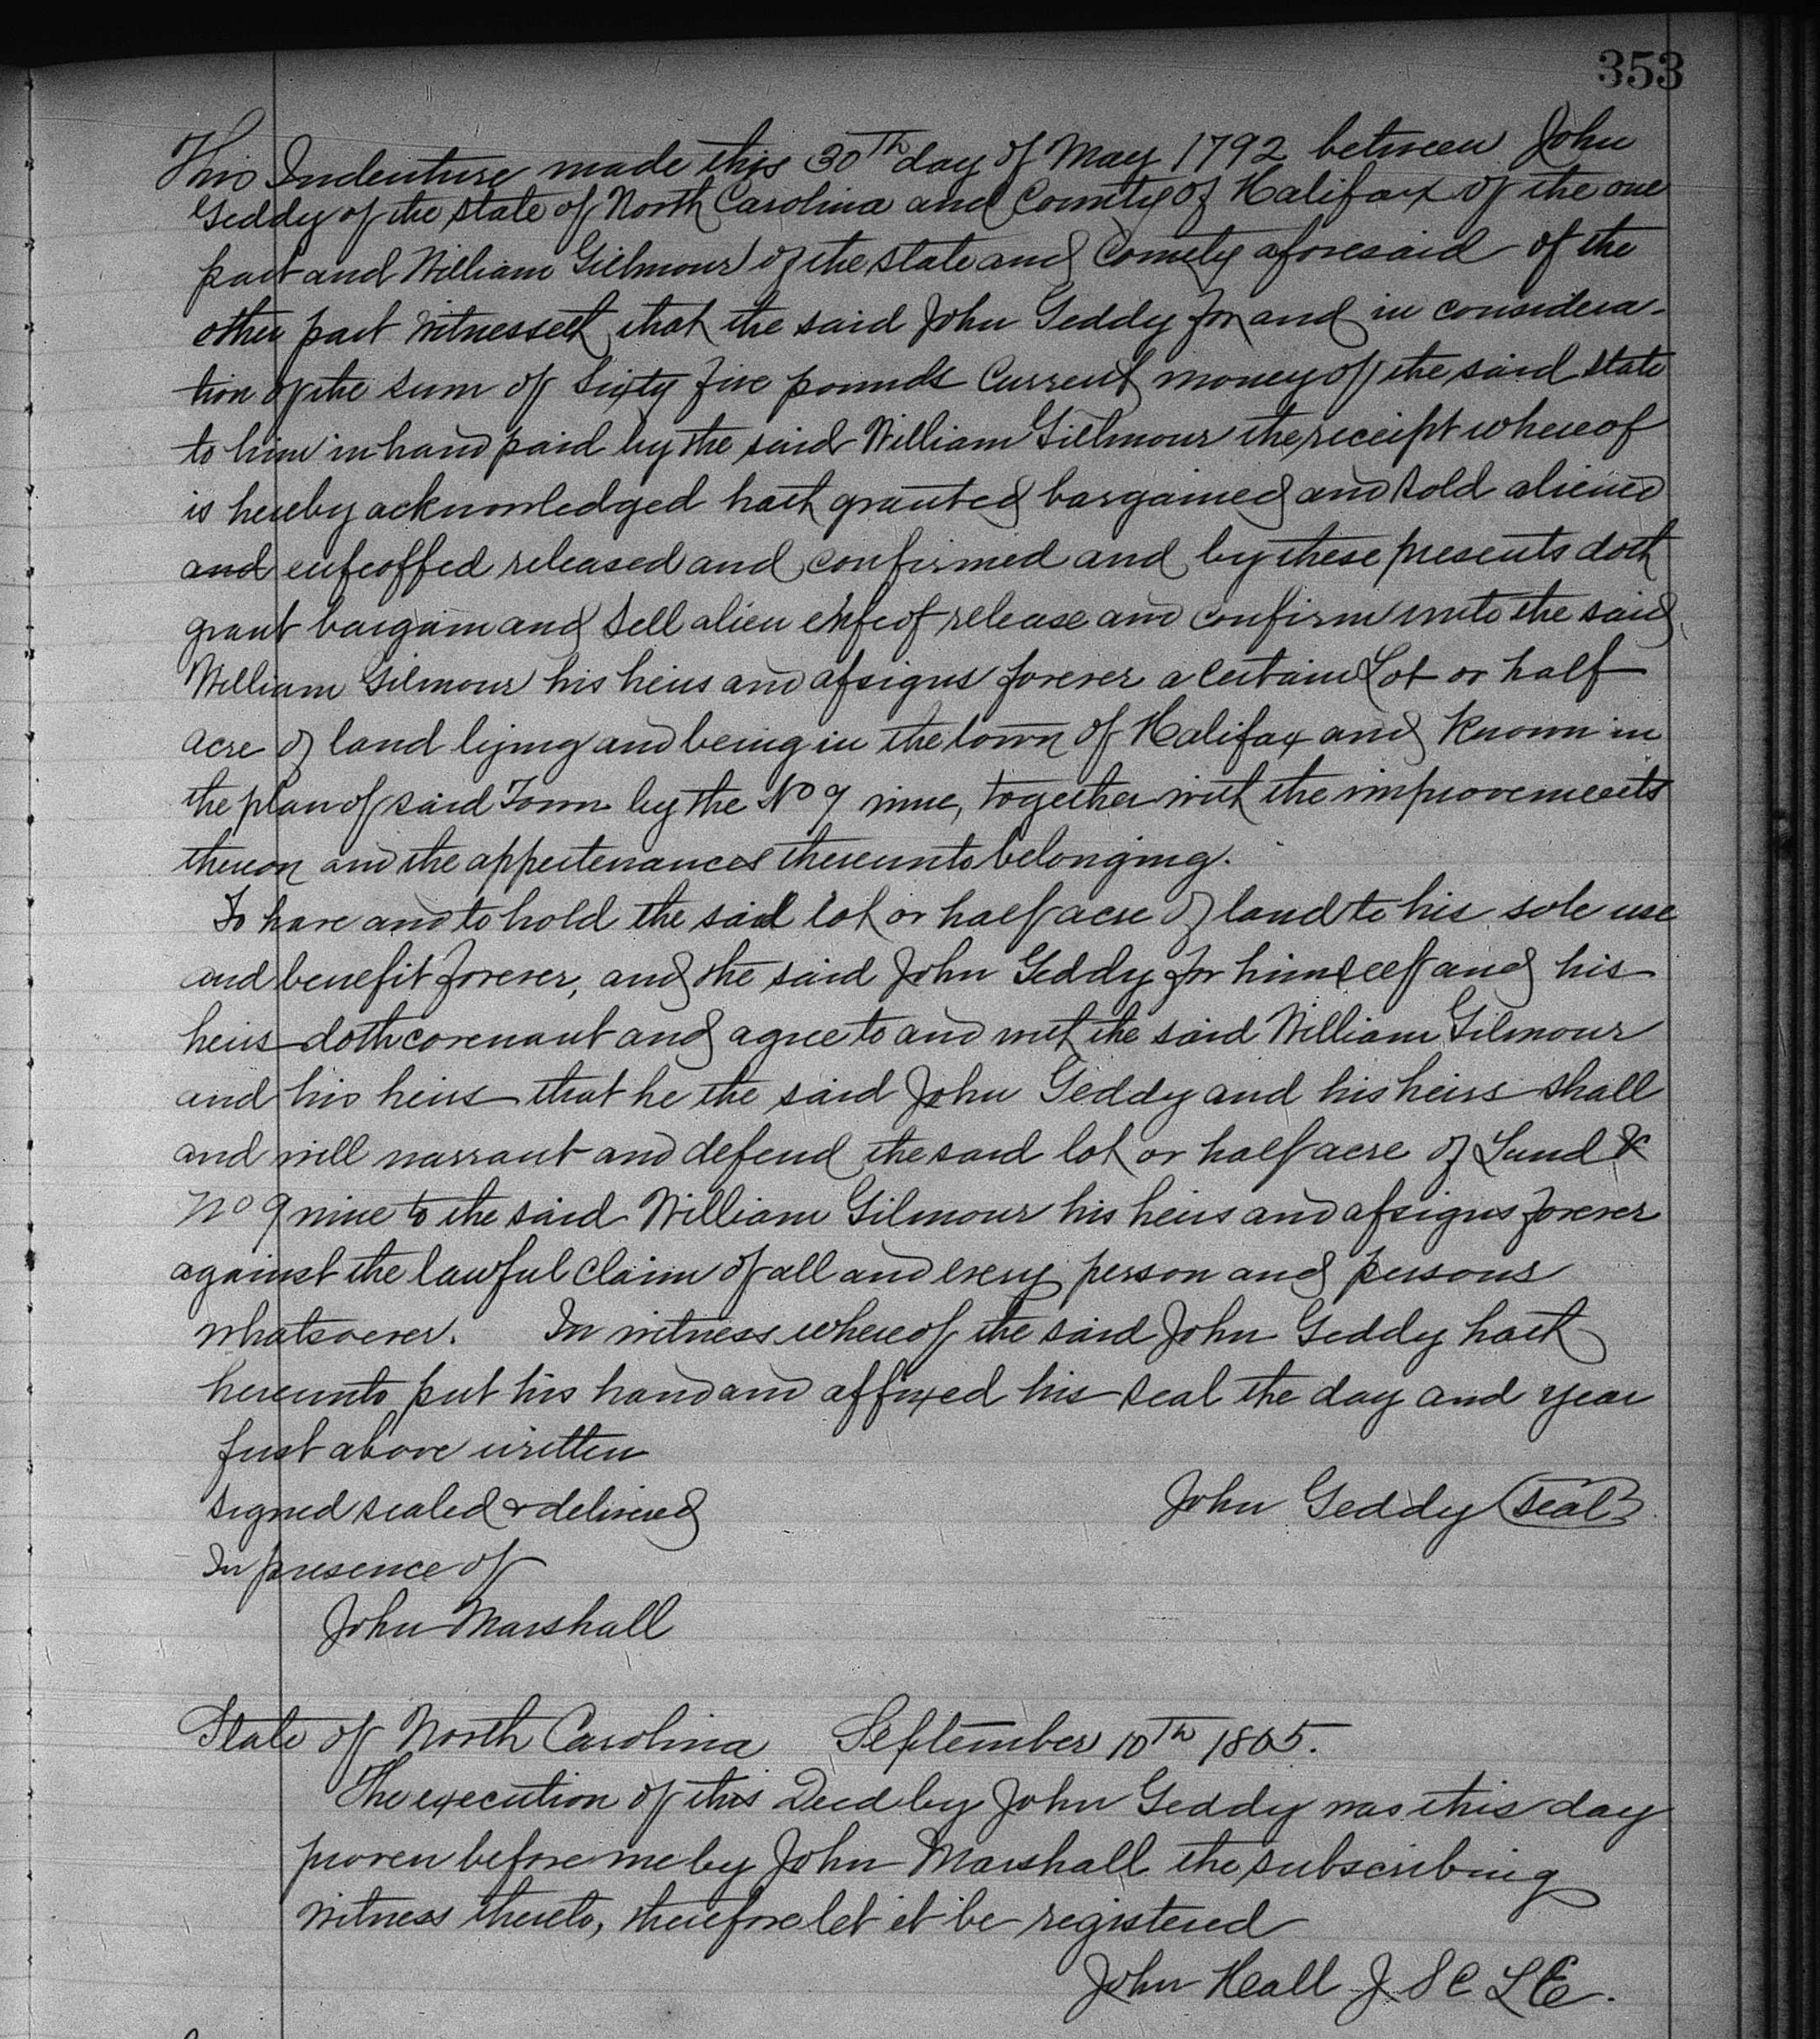 353
This Indenture made this 30th day of May 1792 between John
Geddy of the state of North Carolina and County of Halifax of the one
part and William Gillmour of the state and County aforesaid of the
other part Witnesseth that the said John Geddy for and in considera-
tion of the sum of Sixty five pounds Current money of the said State
to him in hand paid by the said William Gillmour the receipt whereof
is hereby acknowledged hath granted bargained and sold aliened
and enfeoffed released and confirmed and by these presents doth
grant bargain and sell alien enfeof release and confirm unto the said
William Gilmour his heirs and assigns forever a certain Lot or half
acre of land lying and being in the town of Halifax and known in
the plan of said Town by the No 9 nine, together with the improvements
thereon and the appertenances thereunto belonging.
To have and to hold the said lot or half acre of land to his sole use
and benefit forever, and the said John Geddy for himself and his
heirs doth covenant and agree to and with the said William Gilmour
and his heirs that he the said John Geddy and his heirs shall
and will warrant and defend the said lot or half acre of Land &c
No 9 nine to the said William Gilmour his heirs and assigns forever
against the lawful claim of all and every person and persons
whatsoever. In witness whereof the said John Geddy hath
hereunto put his hand and affixed his seal the day and year
first above written
Signed sealed & delivered John Geddy (Seal)
In presence of
John Marshall
State of North Carolina September 10th 1805.
The execution of this Deed by John Geddy was this day
proven before me by John Marshall the subscribing
witness thereto, therefore let it be registered
John Hall J S C L E.